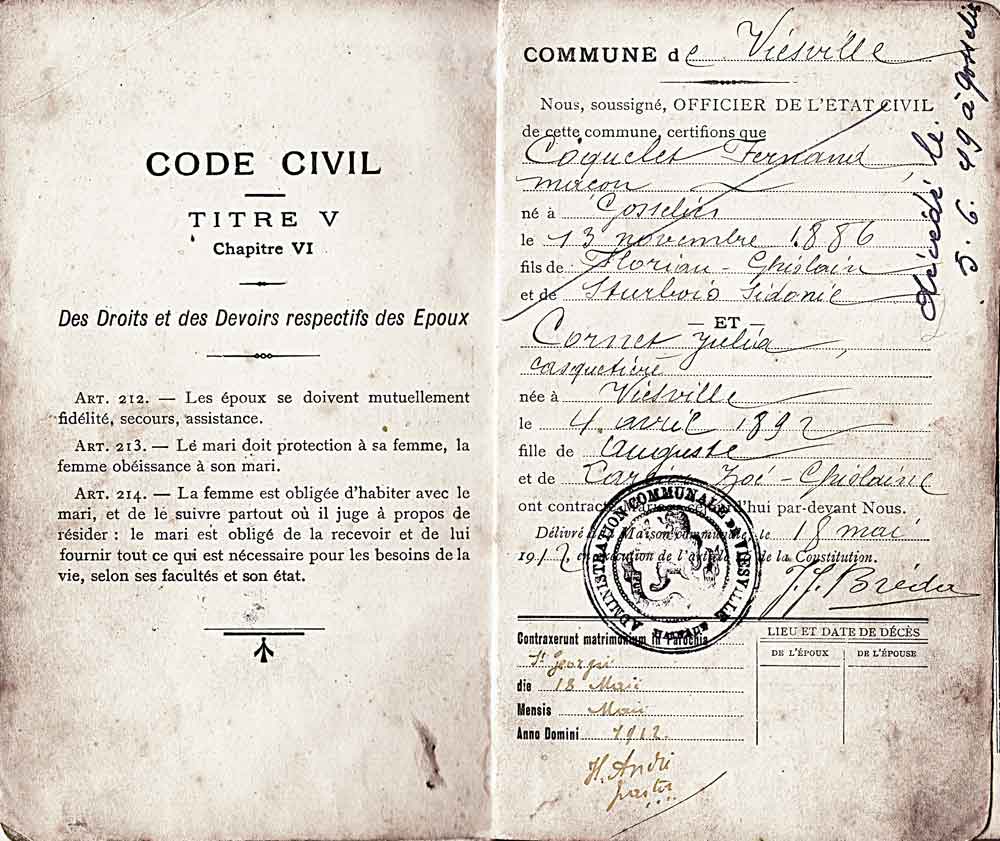 CODE CIVIL
TITRE V
Chapitre VI
Des Droits et des Devoirs respectifs des Epoux
ART. 212. — Les époux se doivent mutuellement
fidélité, secours, assistance.
ART. 213. — Le mari doit protection à sa femme, la
femme obéissance à son mari.
ART. 214. — La femme est obligée d'habiter avec le
mari, et de le suivre partout où il juge à propos de
résider : le mari est obligé de la recevoir et de lui
fournir tout ce qui est nécessaire pour les besoins de la
vie, selon ses facultés et son état.
COMMUNE de Viesville
Nous, soussigné, OFFICIER DE L'ETAT CIVIL
de cette commune, certifions que
Coquelet Fernand,
maçon
né à Gosselies
le 13 novembre 1886
fils de Florian - Ghislain
et de Sturbois Sidonie
— ET —
Cornet Julia,
casquetière
née à Viesville
le 4 avril 1892
fille de Auguste
et de Zoé - Ghislaine
ont contracté par-devant Nous.
Délivré Maison communale, le 18 mai
1912 en exécution de de la Constitution.
J. J. Bréda
ADMINISTRATION COMMUNALE DE VIESVILLE
HAINAUT
Contraxerunt matrimonium in Parochia
St Georgii
die 18 Maii
Mensis Maii
Anno Domini 1912
H. André
pastor
LIEU ET DATE DE DÉCÈS
DE L'ÉPOUX
DE L'ÉPOUSE
décédé le
5. 6. 49 à Gosselies